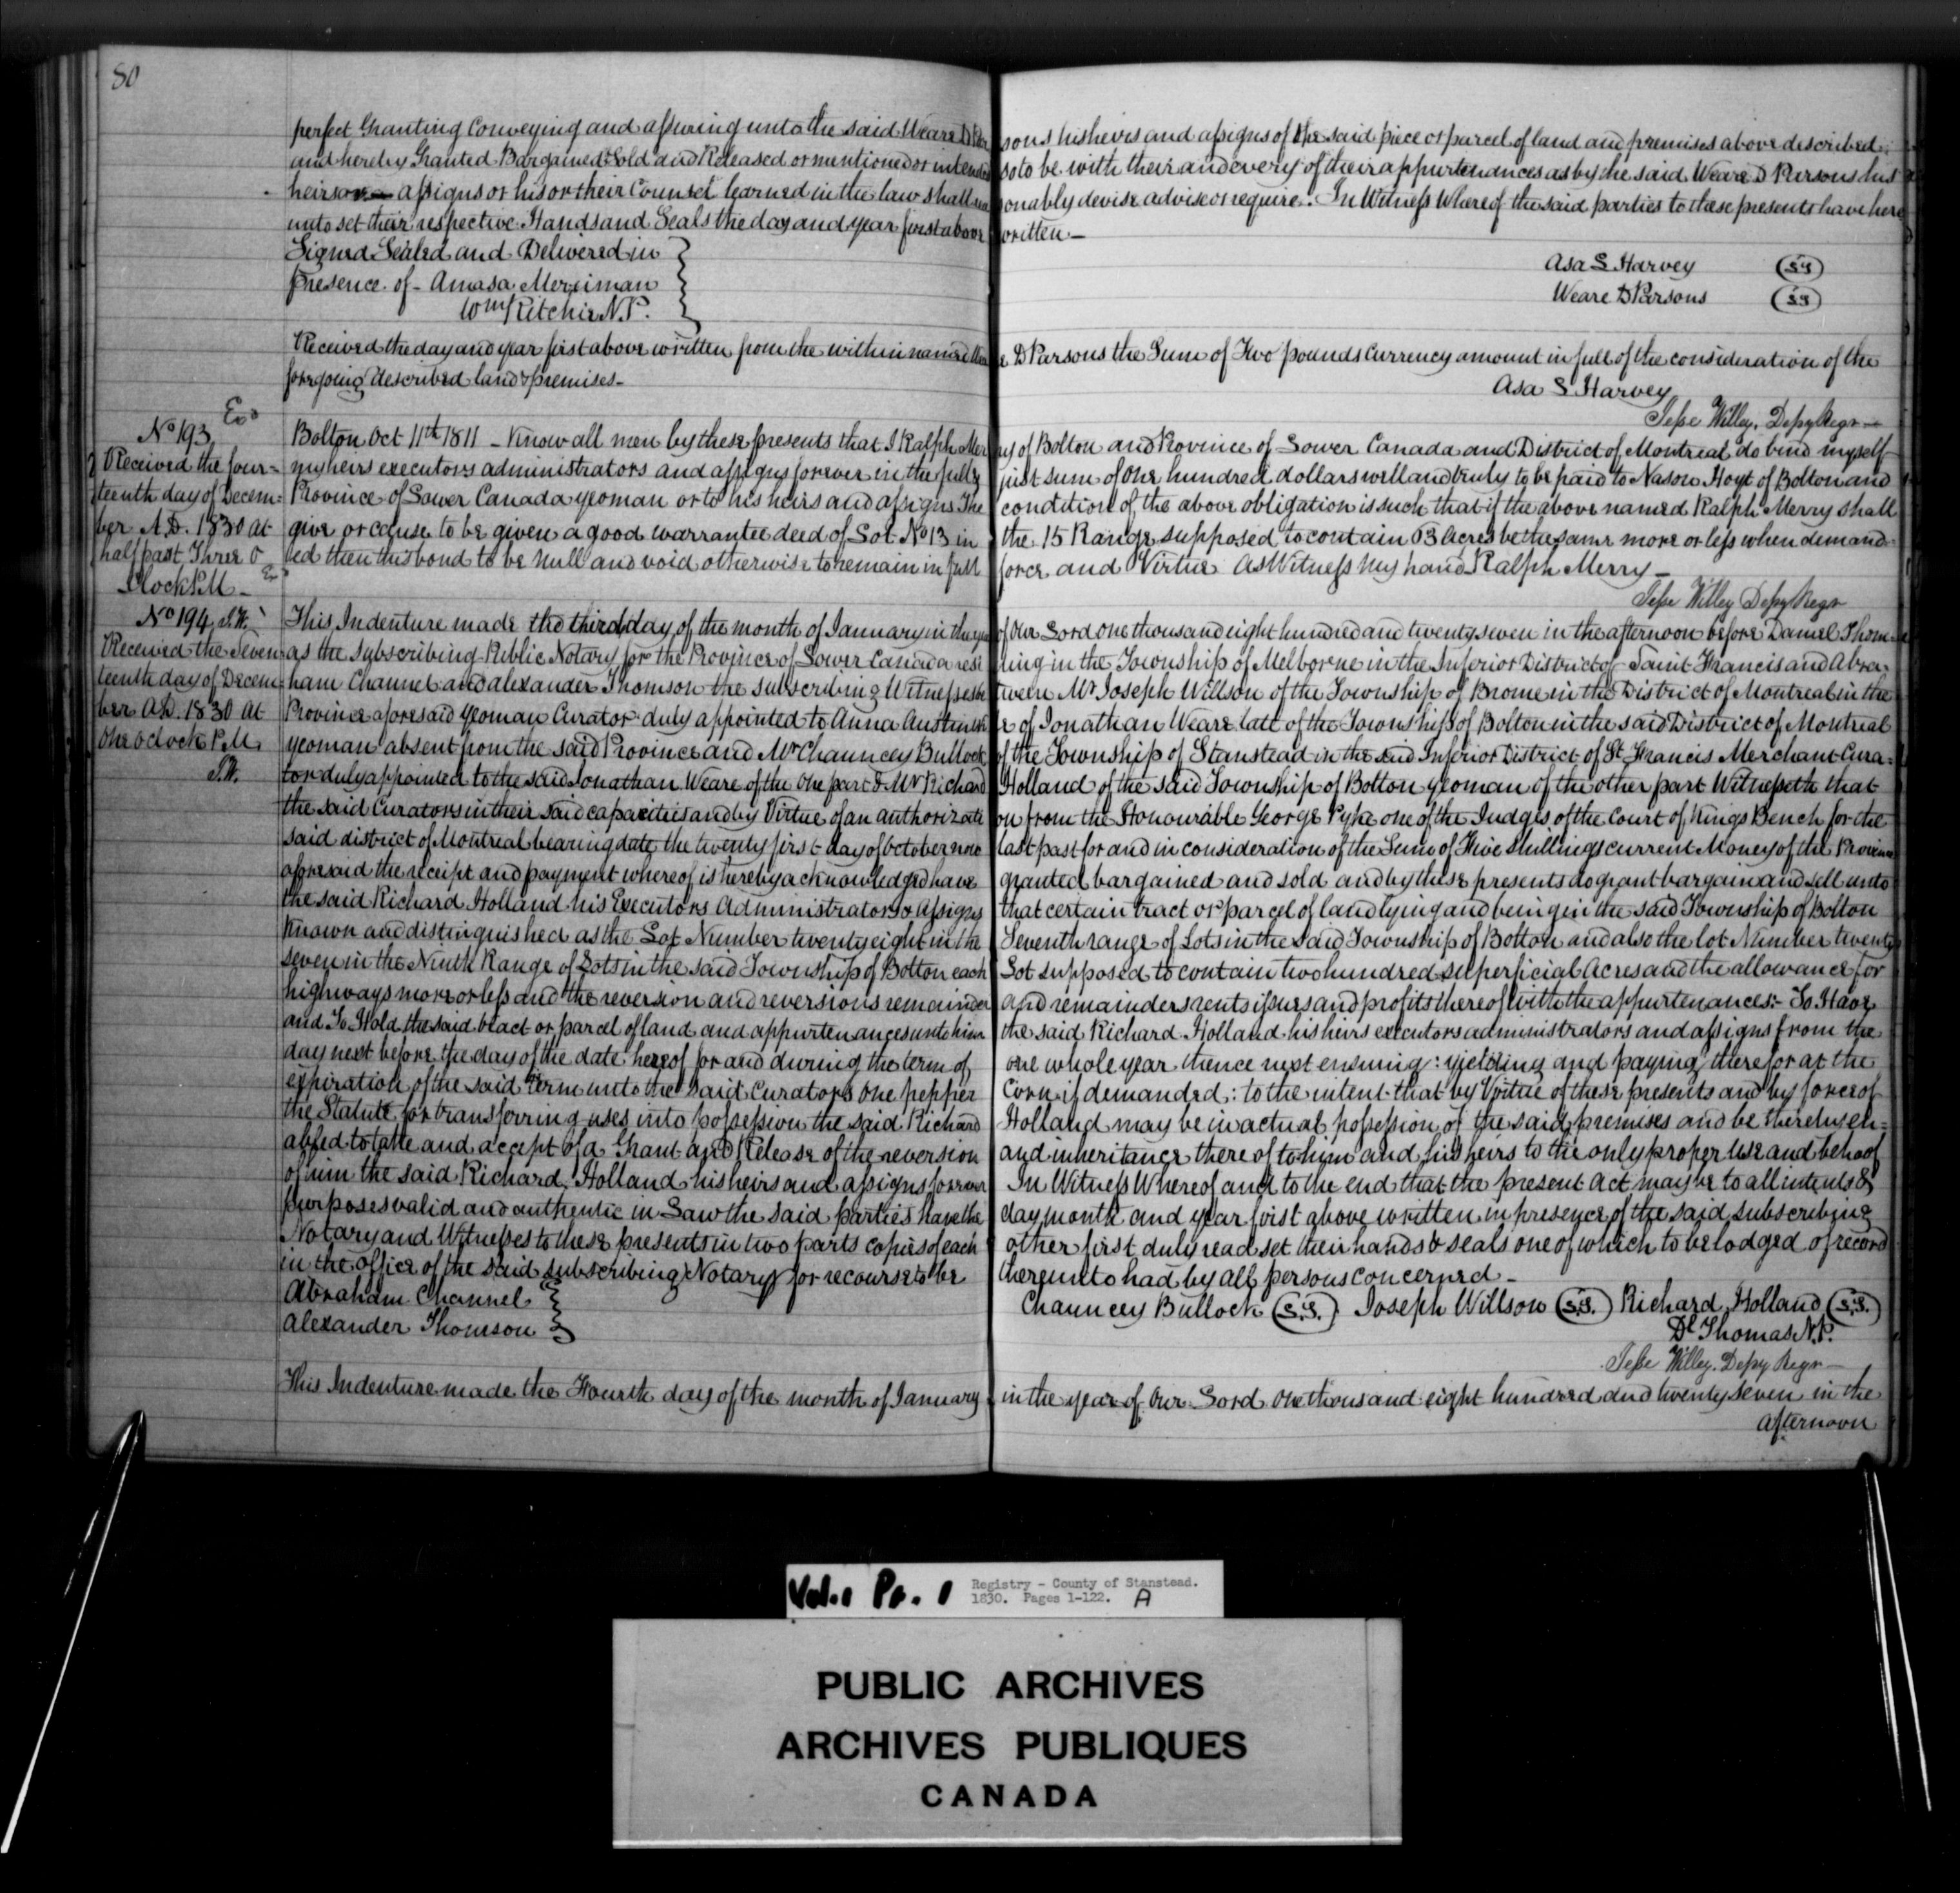 80
perfect Granting Conveying and assuring unto the said Weare D Parsons his heirs and assigns of the said piece or parcel of land and premises above described
and hereby Granted Bargained Sold and Released or mentioned or intended so to be with their and every of their appurtenances as by he said Weare D Parsons his
heirs or assigns or his or their Counsel learned in the law shall reasonably devise advise or require. In Witness Whereof the said parties to these presents have here
unto set their respective Hands and Seals the day and year first above written —
Signed Sealed and Delivered in
presence of - Amasa Merriman
Wm Ritchie N.P.
Asa S Harvey
Weare D Parsons
Received the day and year first above written from the within named Weare D Parsons the Sum of Two pounds Currency amount in full of the consideration of the
foregoing described land & premises -
Asa S Harvey
Jesse Willey. Depy Regr —
Exd
No 193
Received the four=
teenth day of Decem=
ber A.D. 1830 at
half past Three O
Clock P.M —
Exd
Bolton Oct 11th 1811 - Know all men by these presents that I Ralph Merry of Bolton and Province of Lower Canada and District of Montreal do bind myself
my heirs executors administrators and assigns forever in the full & just sum of one hundred dollars well and truly to be paid to Nason Hoyt of Bolton and
Province of Lower Canada yeoman or to his heirs and assigns The condition of the above obligation is such that if the above named Ralph Merry shall
give or cause to be given a good warrantee deed of Lot No 13 in the 15 Range supposed to contain 63 Acres be the same more or less when demand=
ed then this bond to be null and void otherwise to remain in full force and Virtue As Witness my hand Ralph Merry —
Jesse Willey Depy Regr
No 194 J.W.
Received the Seven
teenth day of Decem
ber A.D. 1830 at
One oclock P.M.
J.W.
This Indenture made the third day of the month of January in the year of Our Lord one thousand eight hundred and twenty seven in the afternoon before Daniel Thom=
as the subscribing Public Notary for the Province of Lower Canada residing in the Township of Melborne in the Inferior District of Saint Francis and Abra=
ham Channel and alexander Thomson the subscribing Witnesses between Mr Joseph Willson of the Township of Brome in the District of Montreal in the
Province aforesaid yeoman Curator duly appointed to Anna Austin wife of Jonathan Weare late of the Township of Bolton in the said District of Montreal
yeoman absent from the said Province and Mr Chauncey Bullock of the Township of Stanstead in the said Inferior District of St Francis Merchant Cura=
tor duly appointed to the said Jonathan Weare of the One part & Mr Richard Holland of the said Township of Bolton yeoman of the other part Witnesseth that
the said Curators in their said capacities and by Virtue of an authorization from the Honourable George Pyke one of the Judges of the Court of Kings Bench for the
said district of Montreal bearing date the twenty first day of October now last past for and in consideration of the Sum of Five shillings current Money of the Province
aforesaid the receipt and payment whereof is hereby acknowledged have granted bargained and sold and by these presents do grant bargain and sell unto
the said Richard Holland his Executors Administrators & Assigns that certain tract or parcel of land lying and being in the said Township of Bolton
Known and distinguished as the Lot Number twenty eight in the Seventh range of Lots in the said Township of Bolton and also the lot Number twenty
seven in the Ninth Range of Lots in the said Township of Bolton each Lot supposed to contain two hundred superficial Acres and the allowance for
highways more or less and the reversion and reversions remainder and remainders rents issues and profits thereof with the appurtenances:- To Have
and To Hold the said tract or parcel of land and appurtenances unto him the said Richard Holland his heirs executors administrators and assigns from the
day next before the day of the date hereof for and during the term of one whole year thence next ensuing: yielding and paying therefor at the
expiration of the said term unto the said Curators One pepper Corn if demanded: to the intent that by Virtue of these presents and by force of
the Statute for transferring uses into possession the said Richard Holland may be in actual possession of the said premises and be thereby en=
abled to take and accept of a Grant and Release of the reversion and inheritance there of to him and his heirs to the only proper Use and behoof
of him the said Richard Holland his heirs and assigns forever In Witness Whereof and to the end that the present Act may be to all intents &
purposes valid and authentic in Law the said parties have the day month and year first above written in presence of the said subscribing
Notary and Witnesses to these presents in two parts copies of each other first duly read set their hands & seals one of which to be lodged of record
in the office of the said subscribing Notary for recourse to be thereunto had by all persons concerned -
Abraham Channel
Alexander Thomson
Chauncey Bullock L.S. Joseph Willson L.S. Richard Holland L.S.
Dl Thomas N.P.
Jesse Willey. Depy Regr —
This Indenture made the Fourth day of the month of January in the year of Our Lord One thousand eight hundred and twenty seven in the
afternoon
Vol. 1 Pt. 1 Registry - County of Stanstead.
1830. Pages 1-122. A
PUBLIC ARCHIVES
ARCHIVES PUBLIQUES
CANADA